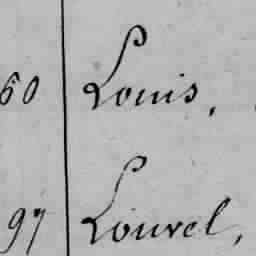 60 Louis,
97 Louvel,